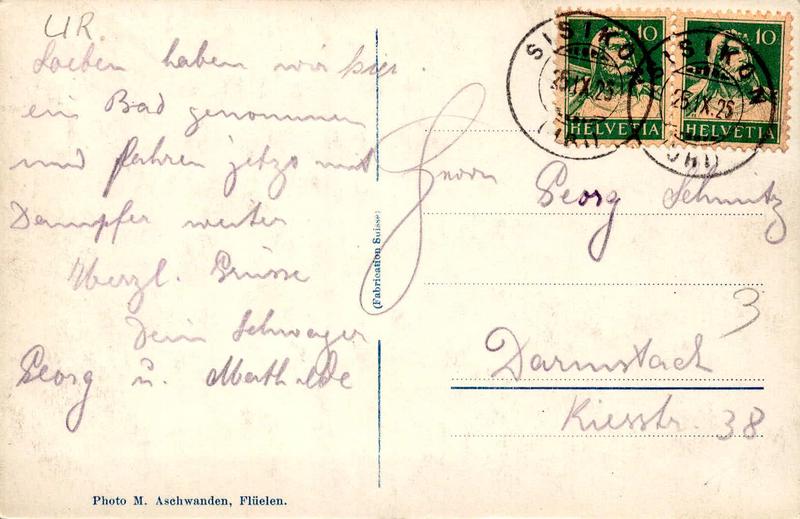 UR.
Soeben haben wir hier
ein Bad genommen
und fahren jetzt mit
Dampfer weiter
Herzl. Grüsse
Dein Schwager
Georg u. Mathilde
Photo M. Aschwanden, Flüelen.
(Fabrication Suisse)
10
HELVETIA
10
HELVETIA
SISIKON
25.IX.25
(URI)
SISIKON
25.IX.25
(URI)
Herrn Georg Schmitz
3
Darmstadt
Kiesstr. 38